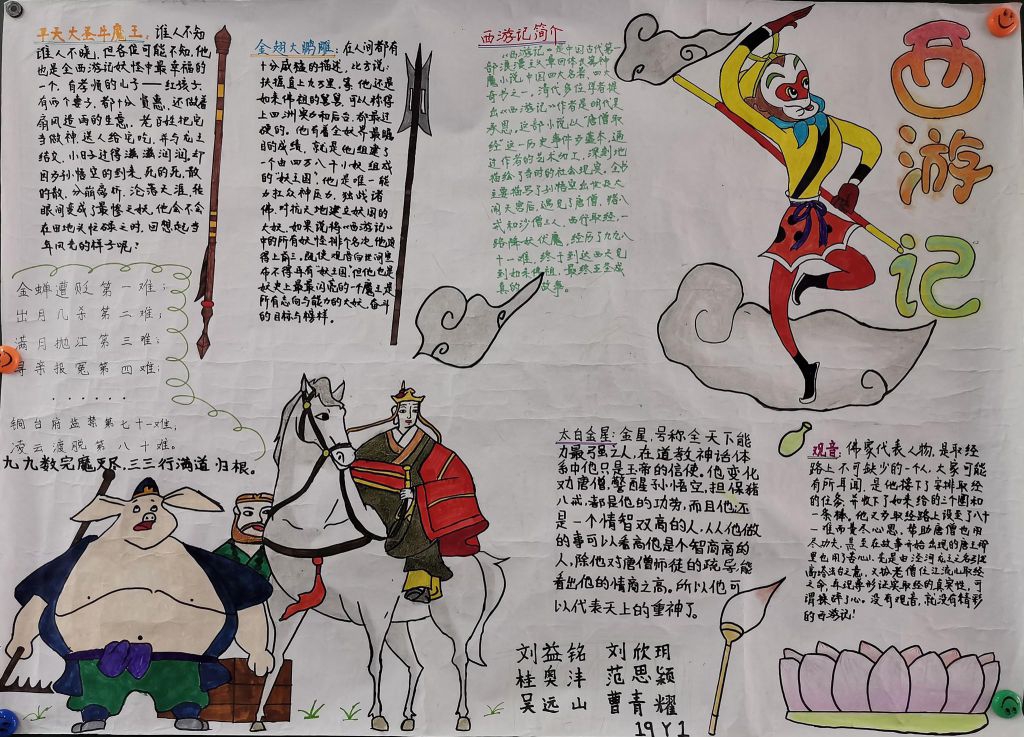 平天大圣牛魔王：谁人不知
谁人不晓，但各位可能不知，他
也是全西游记妖怪中最幸福的
一个，有孝顺的儿子——红孩子，
有两个妻子，都十分贤惠，还做着
扇风造雨的生意，老百姓把它
当做神，送人给它吃，并与龙王
结交，小日子过得滋滋润润，却
因为孙悟空的到来，死的死，散
的散，分崩离析，沦落天涯，转
眼间变成了最惨之妖，他会不会
在田地头忙碌之时，回想起当
年风光的样子呢？
金蝉遭贬第一难；
出月几杀第二难；
满月抛江第三难；
寻亲报冤第四难；
······
铜台府监禁第七十一难，
凌云渡脱第八十难。
九九数完魔灭尽，三三行满道归根。
金翅大鹏雕：在人间都有
十分威猛的描述，比方说：
扶摇直上九万里，掌他还是
如来佛祖的舅舅，可以称得
上四洲实力和后台，都最过
硬的。他有着全妖界最瞩
目的成绩，就是他组建了
一个由四万八千小妖组成
的"妖王国"，他是唯一能
力扛众神压力，独战诸
佛，叶抗大地建立妖国的
大妖，如果说将《西游记》
中的所有妖怪排个名次，他决
得上前三，既使观世间
布不得再有"妖王国"，但他也是
妖史上最最闪亮的一个魔王是
所有志向与能力的大妖，奋斗
的目标与榜样。
西游记简介
《西游记》是中国古代第一
部浪漫主义章回体长篇神
魔小说，中国四大名著，四大
奇书之一，清代多位学者提
出《西游记》作者是明代吴
承恩，这部小说以"唐僧取
经"这一历史事件为蓝本，通
过作者的艺术加工，深刻地
描绘了当时的社会现实，全书
主要描写了孙悟空出世及大
闹天宫后，遇见了唐僧，猪八
戒和沙僧三人，西行取经，一
路降妖伏魔，经历了九九八
十一难，终于到达西天见
到如来佛祖，最终五圣成
真的故事。
西游记
太白金星：金星，号称全天下能
力最强之人，在道教神话体
系中他只是玉帝的信使。他变化
对唐僧，警醒孙悟空，担保猪
八戒，都是他的功劳，而且他还
是一个情智双高的人，从他做
的事可以看高他是个智商高的
人，除他对唐僧师徒的疏导能
看出他的情商之高。所以他可
以代表天上的重神了。
观音：佛家代表人物，是取经
路上不可缺少的一个人，大家可能
有所耳闻，是他接下了安排取经
的任务，并收下了如来给的三个圈和
一条棒，他又为取经路上设至了八十
一难，而量尽心思，帮助唐僧也用
尽功夫，甚至在故事开始出现的唐王那
里也用了苦心，先是由泾河龙王之名引起
高唱法台之意，又扮老僧任让流取经
之命，再现尊形证实取经的真实性，可
谓操碎了心。没有观音，就没有精彩
的西游记！
刘益铭 刘欣玥
桂奥沣 范思颖
吴远山 曹青耀
19Y1